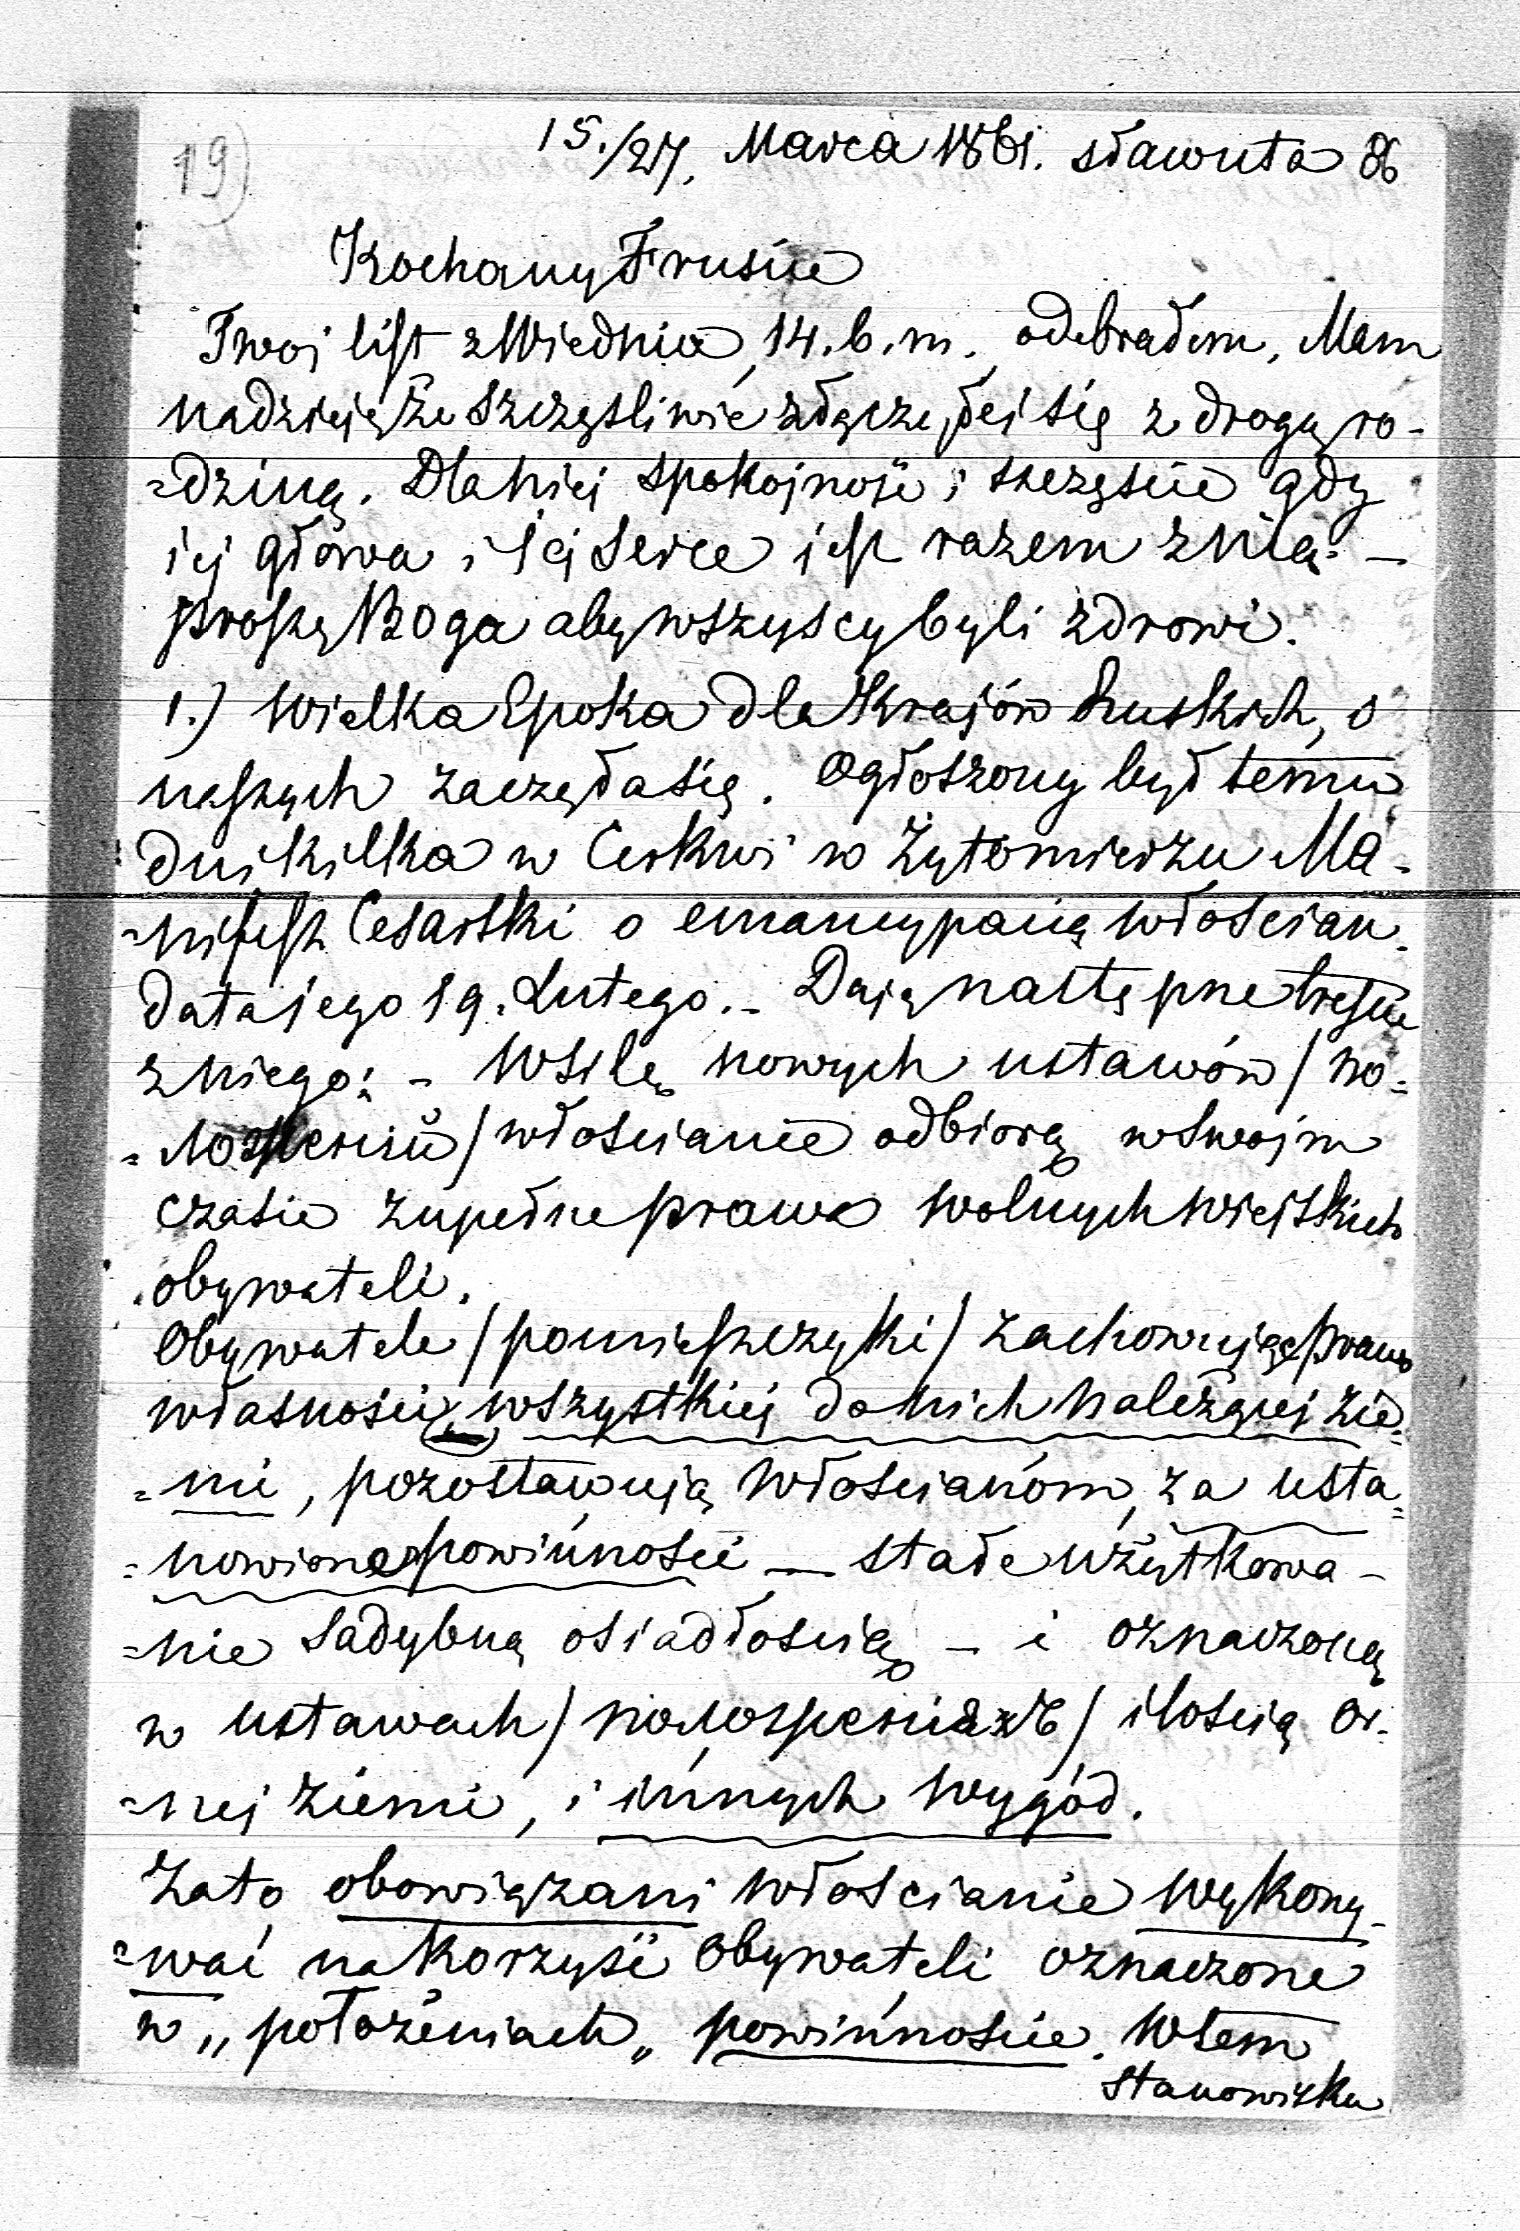 19)
15./27. Marca 1861. Sławuta 86
Kochany Frusiu
Twoj list z Wiednia 14. b. m. odebrałem, Mam
nadzieję że szczęśliwie złączyłeś się z drogą ro-
=dziną. Dla niej spokojność i szczęście gdy
iej głowa i iej Serce iest razem z nią. –
proszę Boga aby wszyscy byli zdrowi.
1.) Wielka Epoka dla Krajów Ruskich, i
naszych zaczęła się. Ogłoszony był temu
dni kilka w Cerkwi w Żytomierzu Ma-
=nifest Cesarski o emancypacią włościan.
data iego 19. Lutego. – Daię następne treście
z niego: – W siłę nowych ustawów / по=
=ложений / włościanie odbiorą w swoim
czasie zupełne prawa wolnych wiejskich
obywateli.
Obywatele / pomieszczyki / zachowując prawo
własności wszystkiej do nich należącej zie=
=mi, pozostawują włościanóm, za usta=
=nowione powinności – stałe użytkowa-
=nie Sadybną osiadłością – i oznaczoną
w ustawach / положенияхъ / ilością or-
=nej ziemi, i innych wygód.
Zato obowiązani włościanie wykony-
=wać na korzyść Obywateli oznaczone
w „położeniach„ powinnoście. W tem
stanowisku